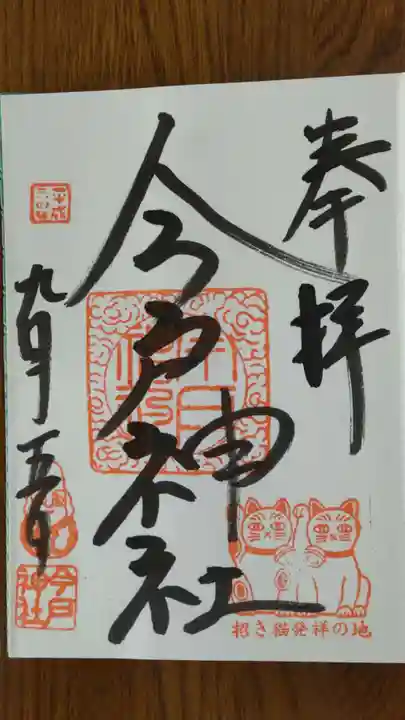 奉拝
今戸神社
九月十五日
招き猫発祥の地
今戸神社